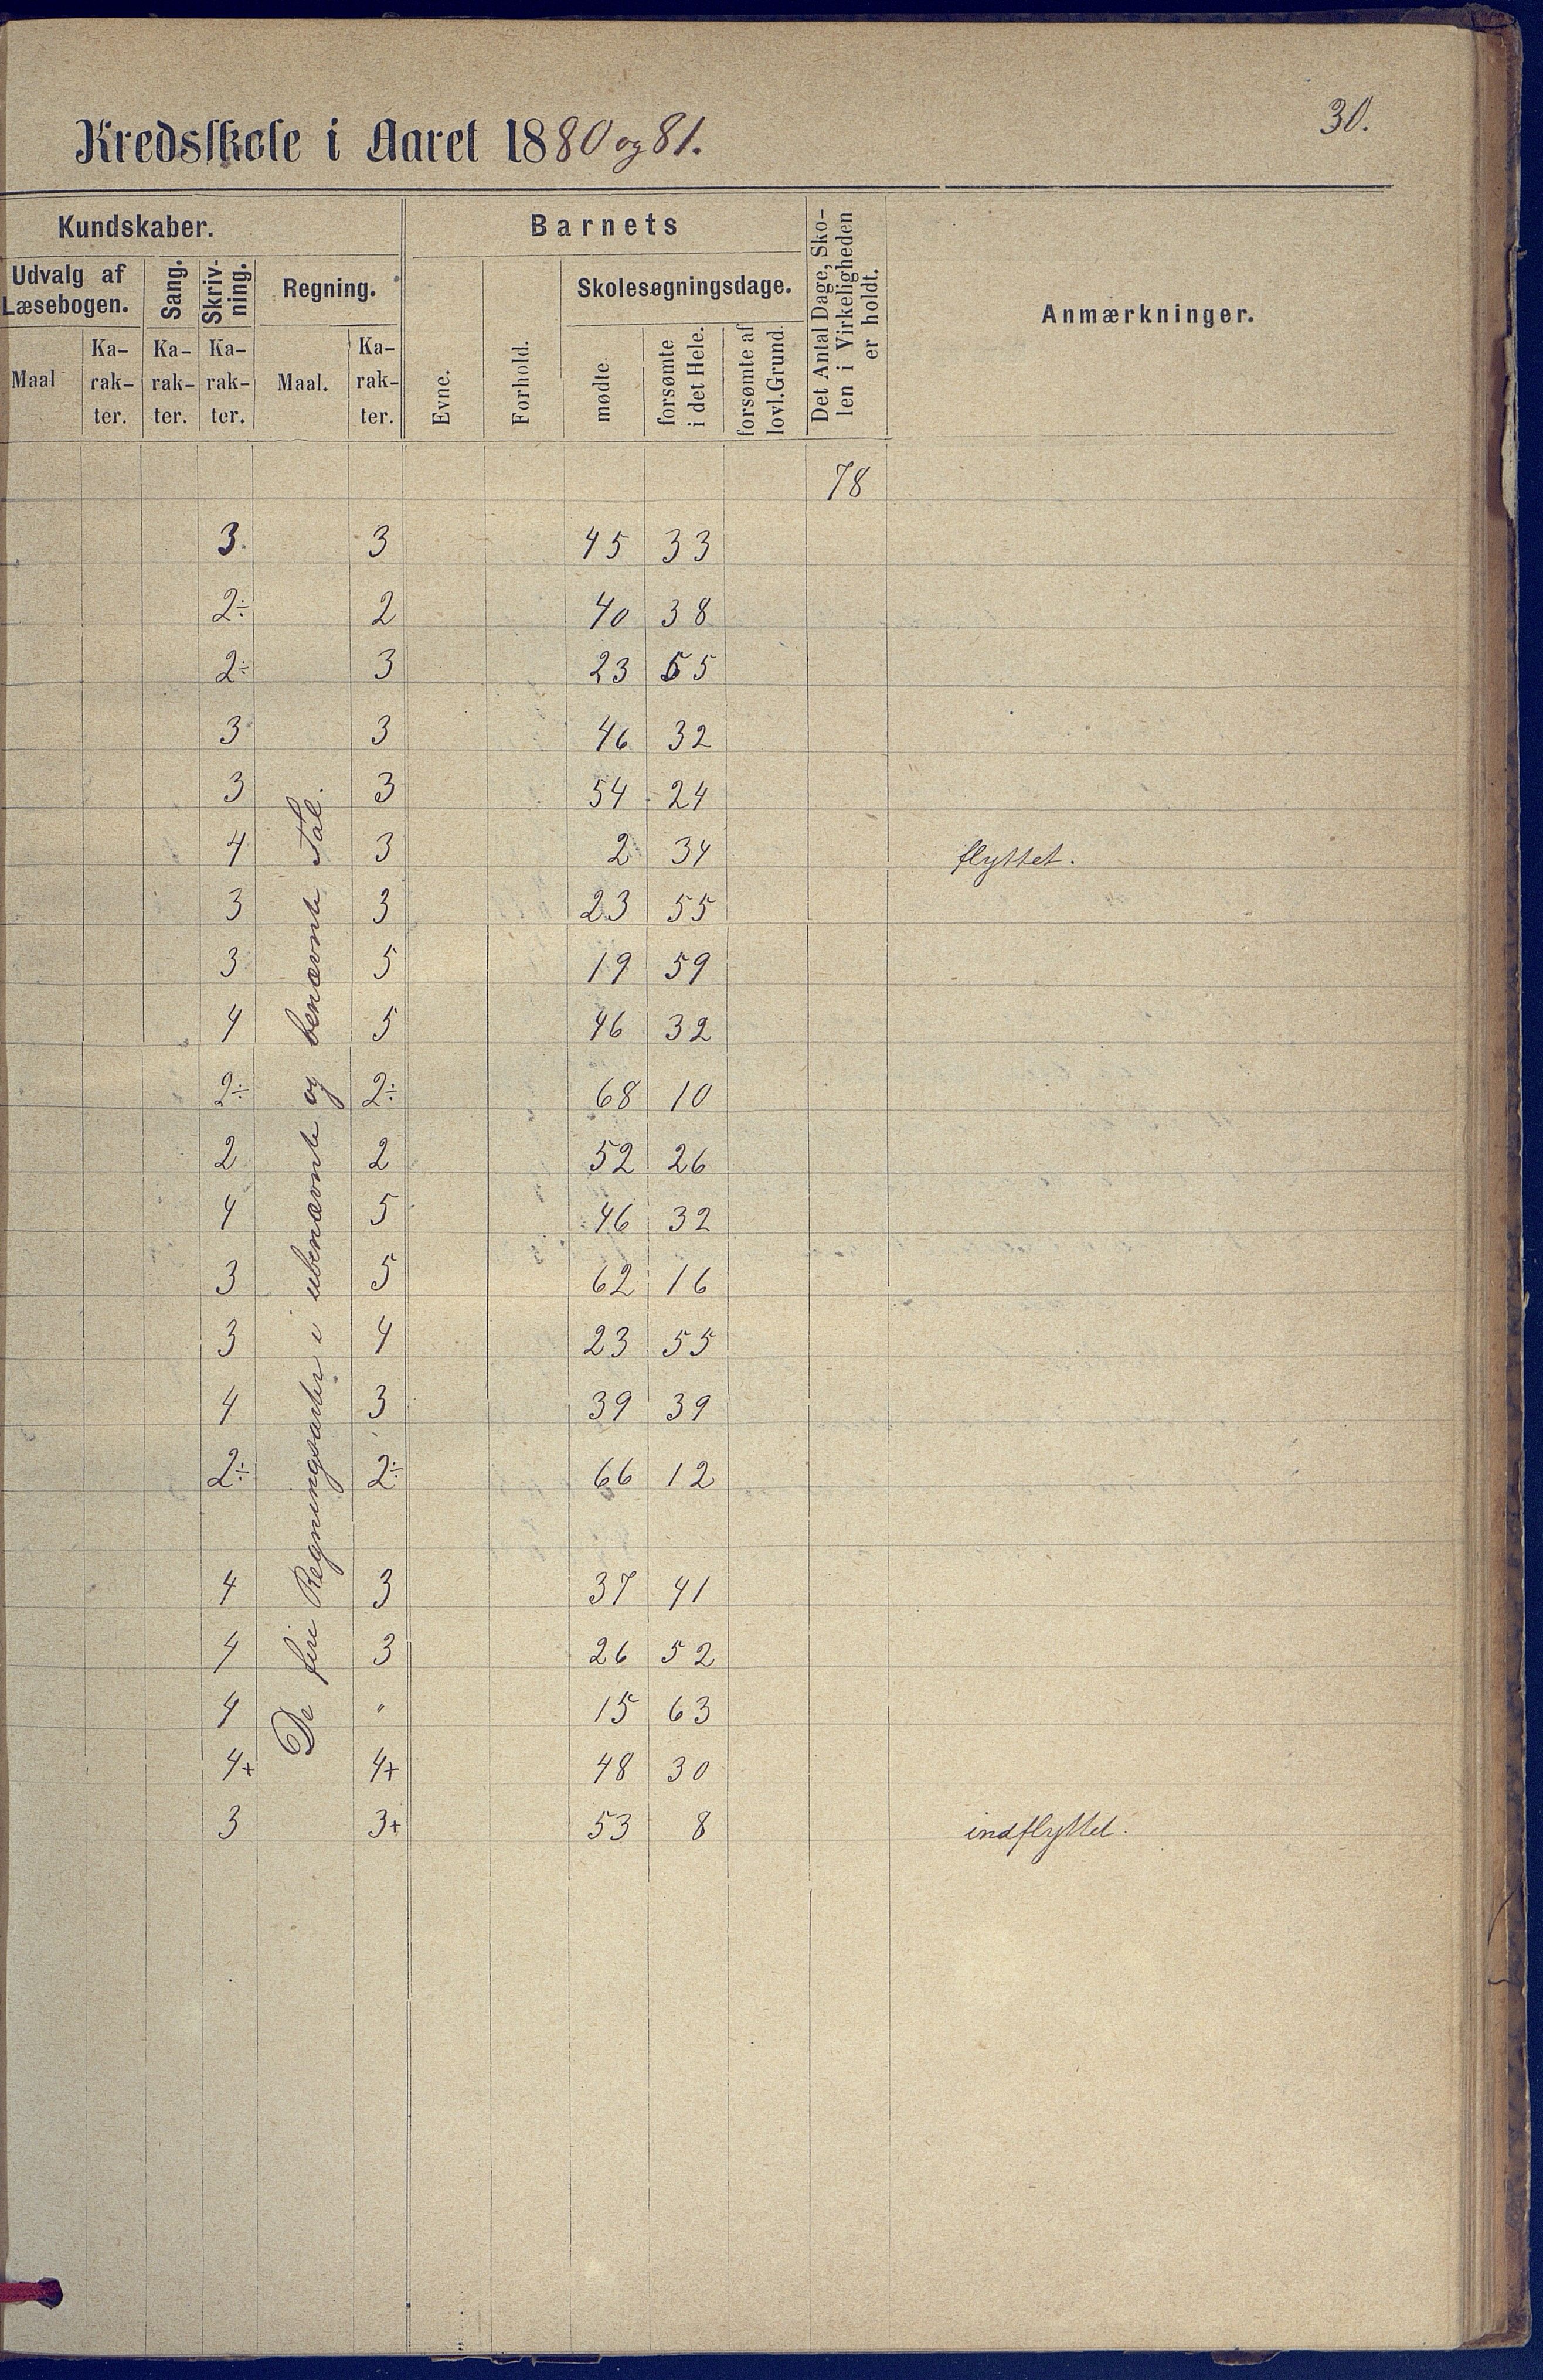 30.
Kredsskole i Aaret 1880 og 81.
Kundskaber.
Barnets
Det Antal Dage, Sko-
len i Virkeligheden
er holdt.
Anmærkninger.
Udvalg af
Læsebogen.
Sang.
Skriv-
ning.
Regning.
Evne.
Forhold.
Skolesøgningsdage.
Maal
Ka-
rak-
ter.
Ka-
rak-
ter.
Ka-
rak-
ter.
Maal.
Ka-
rak-
ter.
mødte.
forsømte
i det Hele.
forsømte af
lovl. Grund
78
3. 3 45 33
2÷ 2 40 38
2÷ 3 23 55
3 3 46 32
3 3 54 24
4 3 2 34 flyttet.
3 3 23 55
3 5 19 59
4 5 46 32
2÷ 2÷ 68 10
2 2 52 26
4 5 46 32
3 5 62 16
3 4 23 55
4 3 39 39
2÷ 2÷ 66 12
4 3 37 41
4 3 26 52
4 " 15 63
4+ 4+ 48 30
3 3+ 53 8 indflyttet.
De fire Regningsarter i ubenævnte og benævnte Tal.